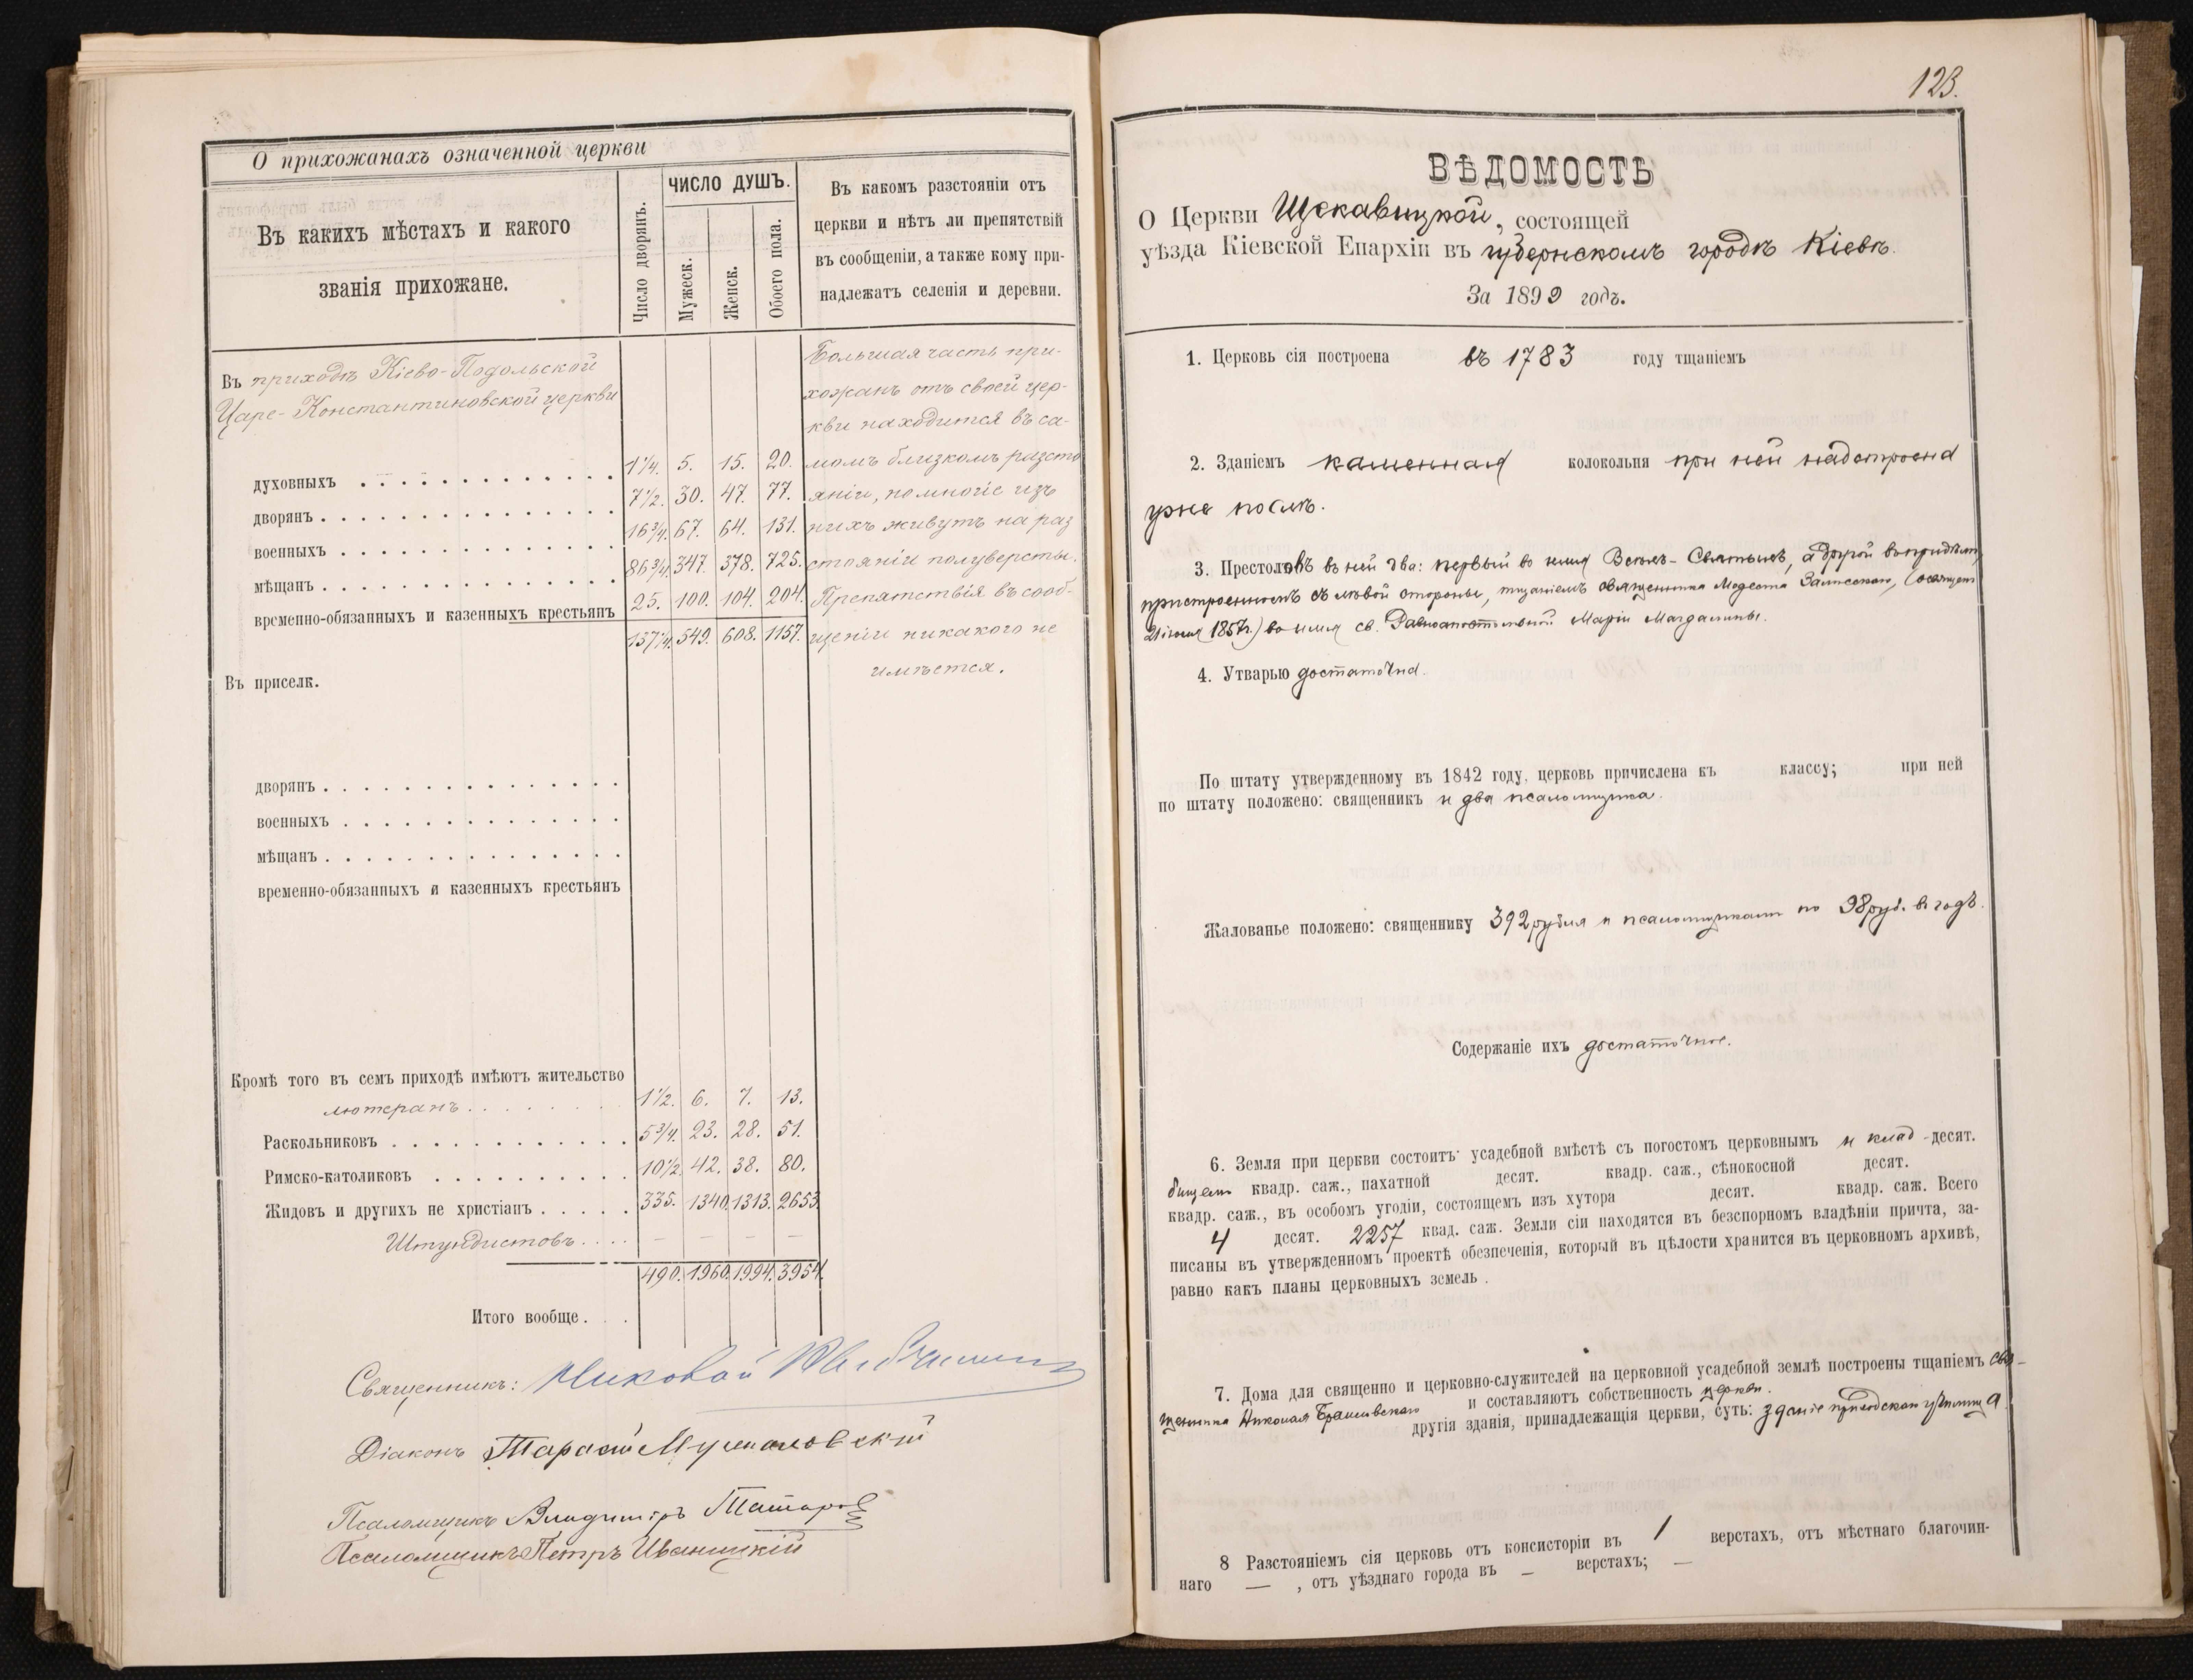 О прихожанахъ означенной церкви
Въ какихъ мѣстахъ и какого
званія прихожане.
Число дворянъ.
ЧИСЛО ДУШЪ.
Мужеск.
Женск.
Обоего пола.
Въ какомъ разстояніи отъ
церкви и нѣтъ ли препятствій
въ сообщеніи, а также кому при-
надлежатъ селенія и деревни.
Въ приходѣ Кіево-Подольской
Царе-Константиновской церкви
духовныхъ 1 1/4. 5. 15. 20.
дворянъ 7 1/2. 30. 47. 77.
военныхъ 16 3/4. 67. 64. 131.
мѣщанъ 86 3/4. 347. 378. 725.
временно-обязанныхъ и казенныхъ крестьянъ 25. 100. 104. 204.
137 1/4. 549. 608. 1157.
Большая часть при-
хожанъ отъ своей цер-
кви находится въ са-
момъ близкомъ разсто
яніи, но многіе изъ
нихъ живутъ на раз
стояніи полуверсты.
Препятствія въ сооб-
щеніи никакого не
имѣется.
Въ приселк.
дворянъ
военныхъ
мѣщанъ
временно-обязанныхъ и казенныхъ крестьянъ
Кромѣ того въ семъ приходѣ имѣютъ жительство
лютеранъ 1 1/2. 6. 7. 13.
Раскольниковъ 5 3/4. 23. 28. 51.
Римско-католиковъ 10 1/2. 42. 38. 80.
Жидовъ и другихъ не христіанъ 335. 1340. 1313. 2653.
Штундистовъ — — — —
490. 1960. 1994. 3954.
Итого вообще
Священникъ: Николай
Діаконъ Тарасій
Псаломщикъ Владиміръ Татаровъ
Псаломщикъ Петръ Иваницкій
123.
ВѢДОМОСТЬ
О Церкви Щекавицкой, состоящей
уѣзда Кіевской Епархіи въ губернскомъ городѣ Кіевѣ.
За 1899 годъ.
1. Церковь сія построена въ 1783 году тщаніемъ
2. Зданіемъ каменная колокольня при ней надстроена
уже послѣ.
3. Престоловъ въ ней два: первый во имя Всѣхъ-Святыхъ, а другой въ придѣлѣ,
пристроенномъ съ лѣвой стороны, тщаніемъ священника Модеста Залѣсскаго, (освящен
21 іюля 1857 г.) во имя св. Равноапостольной Маріи Магдалины.
4. Утварью достаточна.
По штату утвержденному въ 1842 году, церковь причислена къ классу; при ней
по штату положено: священникъ и два псаломщика.
Жалованье положено: священнику 392 рубля и псаломщикамъ по 98 руб. въ годъ.
Содержаніе ихъ достаточное.
6. Земля при церкви состоитъ: усадебной вмѣстѣ съ погостомъ церковнымъ и клад-десят.
бищемъ квадр. саж., пахатной десят. квадр. саж., сѣнокосной десят.
квадр. саж., въ особомъ угодіи, состоящемъ изъ хутора десят. квадр. саж. Всего
4 десят. 2257 квад. саж. Земли сіи находятся въ безспорномъ владѣніи причта, за-
писаны въ утвержденномъ проектѣ обезпеченія, который въ цѣлости хранится въ церковномъ архивѣ,
равно какъ планы церковныхъ земель.
7. Дома для священно и церковно-служителей на церковной усадебной землѣ построены тщаніемъ свя-
щенника Николая и составляютъ собственность церкви.
другія зданія, принадлежащія церкви, суть: зданіе приходскаго училища
8 Разстояніемъ сія церковь отъ консисторіи въ 1 верстахъ, отъ мѣстнаго благочин-
наго — , отъ уѣзднаго города въ — верстахъ; —